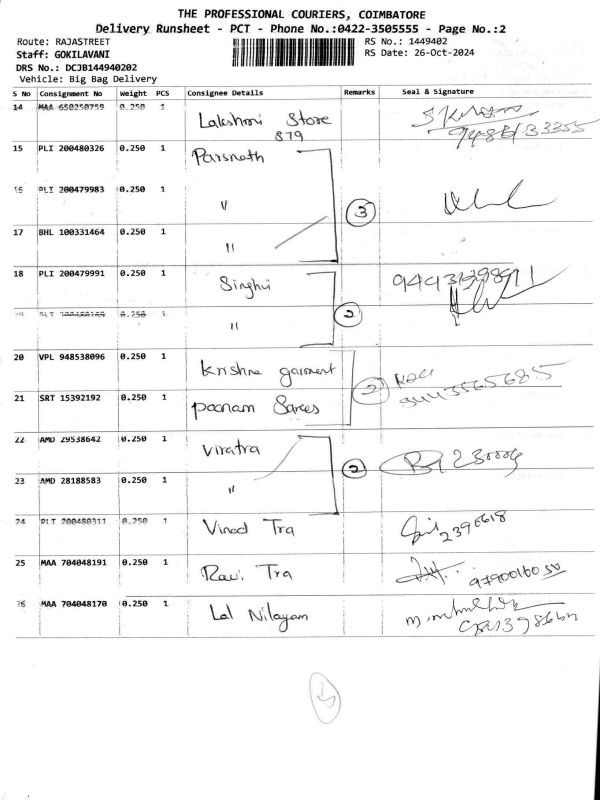 THE PROFESSIONAL COURIERS, COIMBATORE
Delivery Runsheet - PCT - Phone No.:0422-3505555 - Page No.:2
Route: RAJASTREET RS No.: 1449402
Staff: GOKILAVANI RS Date: 26-Oct-2024
DRS No.: DCJB144940202
Vehicle: Big Bag Delivery
S No Consignment No Weight PCS Consignee Details Remarks Seal & Signature
14 MAA 650250759 0.250 1 Lakshmi Store
879
15 PLI 200480326 0.250 1 Parsnath
16 PLI 200479983 0.250 1 "
3
17 BHL 100331464 0.250 1 "
18 PLI 200479991 0.250 1 Singhvi
0.250 1 " 2
20 VPL 948538096 0.250 1 Krishna garment
2
21 SRT 15392192 0.250 1 Poonam Sarees
22 AMD 29538642 0.250 1 Viratra
2
23 AMD 28188583 0.250 1 "
24 PLI 200480311 0.250 1 Vinod Tra
2390618
25 MAA 704048191 0.250 1 Ravi Tra
9790016050
26 MAA 704048170 0.250 1 Lal Nilayam